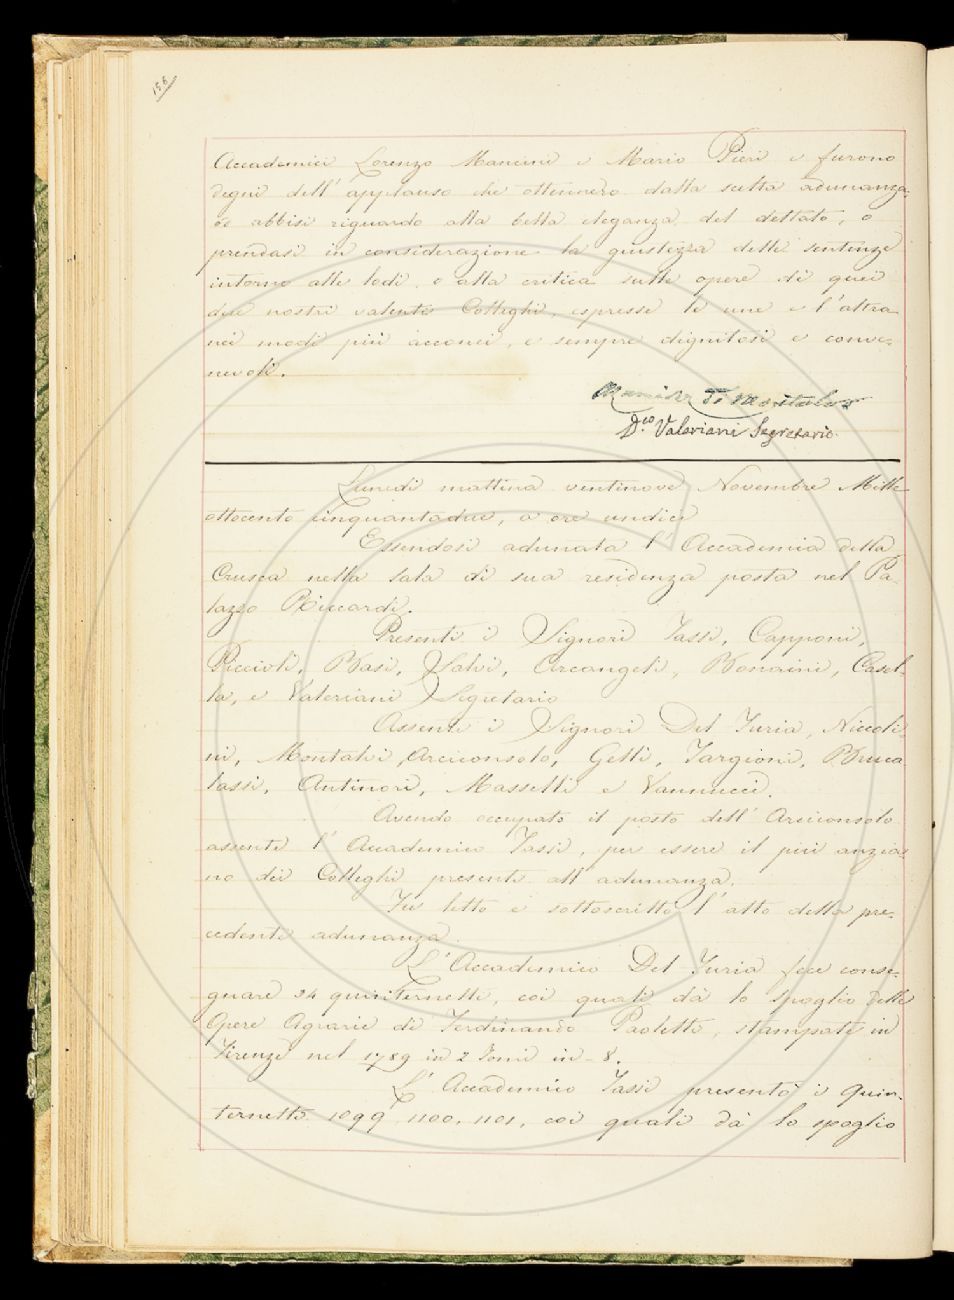 156
Accademici Lorenzo Mancini e Mario Pieri e furono
degni dell'applauso che ottennero dalla scelta adunanza,
o abbisi riguardo alla bella eleganza del dettato, o
prendasi in considerazione la giustezza delle sentenze
intorno alle lodi e alla critica sulle opere di quei
due nostri valenti Colleghi, espresse le une e l'altra
nei modi più acconci, e sempre dignitosi e conve-
nevoli.
D.co Valeriani Segretario
Lunedì mattina ventinove Novembre Mille
ottocento cinquantadue, a ore undici
Essendosi adunata l'Accademia della
Crusca nella sala di sua residenza posta nel Pa-
lazzo Riccardi.
Presenti i Signori Tassi, Capponi,
Piccioli, Basi, Salvi, Arcangeli, Bonaini, Casel-
la, e Valeriani Segretario
Assenti i Signori Del Furia, Niccoli-
ni, Montalvi Arciconsolo, Gelli, Targioni, Bruca-
lassi, Antinori, Masselli e Vannucci.
Avendo occupato il posto dell'Arciconsolo
assente l'Accademico Tassi, per essere il più anzia-
no dei Colleghi presenti all'adunanza.
Fu letto e sottoscritto l'atto della pre-
cedente adunanza.
L'Accademico Del Furia fece conse-
gnare 24 quinternetti, coi quali dà lo spoglio delle
Opere Agrarie di Ferdinando Paoletti, stampate in
Firenze nel 1789 in 2 Tomi in-8.
L'Accademico Tassi presentò i quin-
ternetti 1099, 1100, 1101, coi quali dà lo spoglio